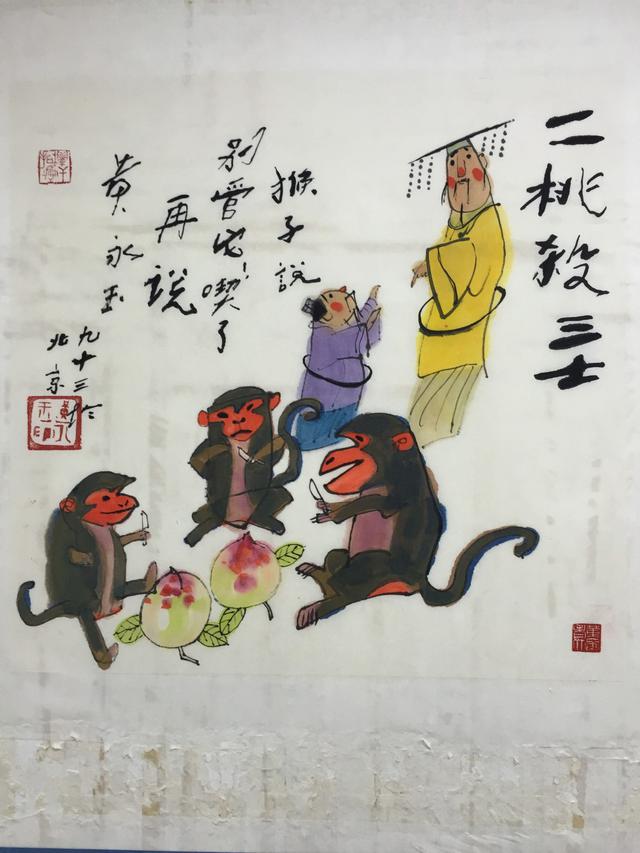 二桃殺三士
猴子說
别管它!喫了
再說
黄永玉
九十三於
北京